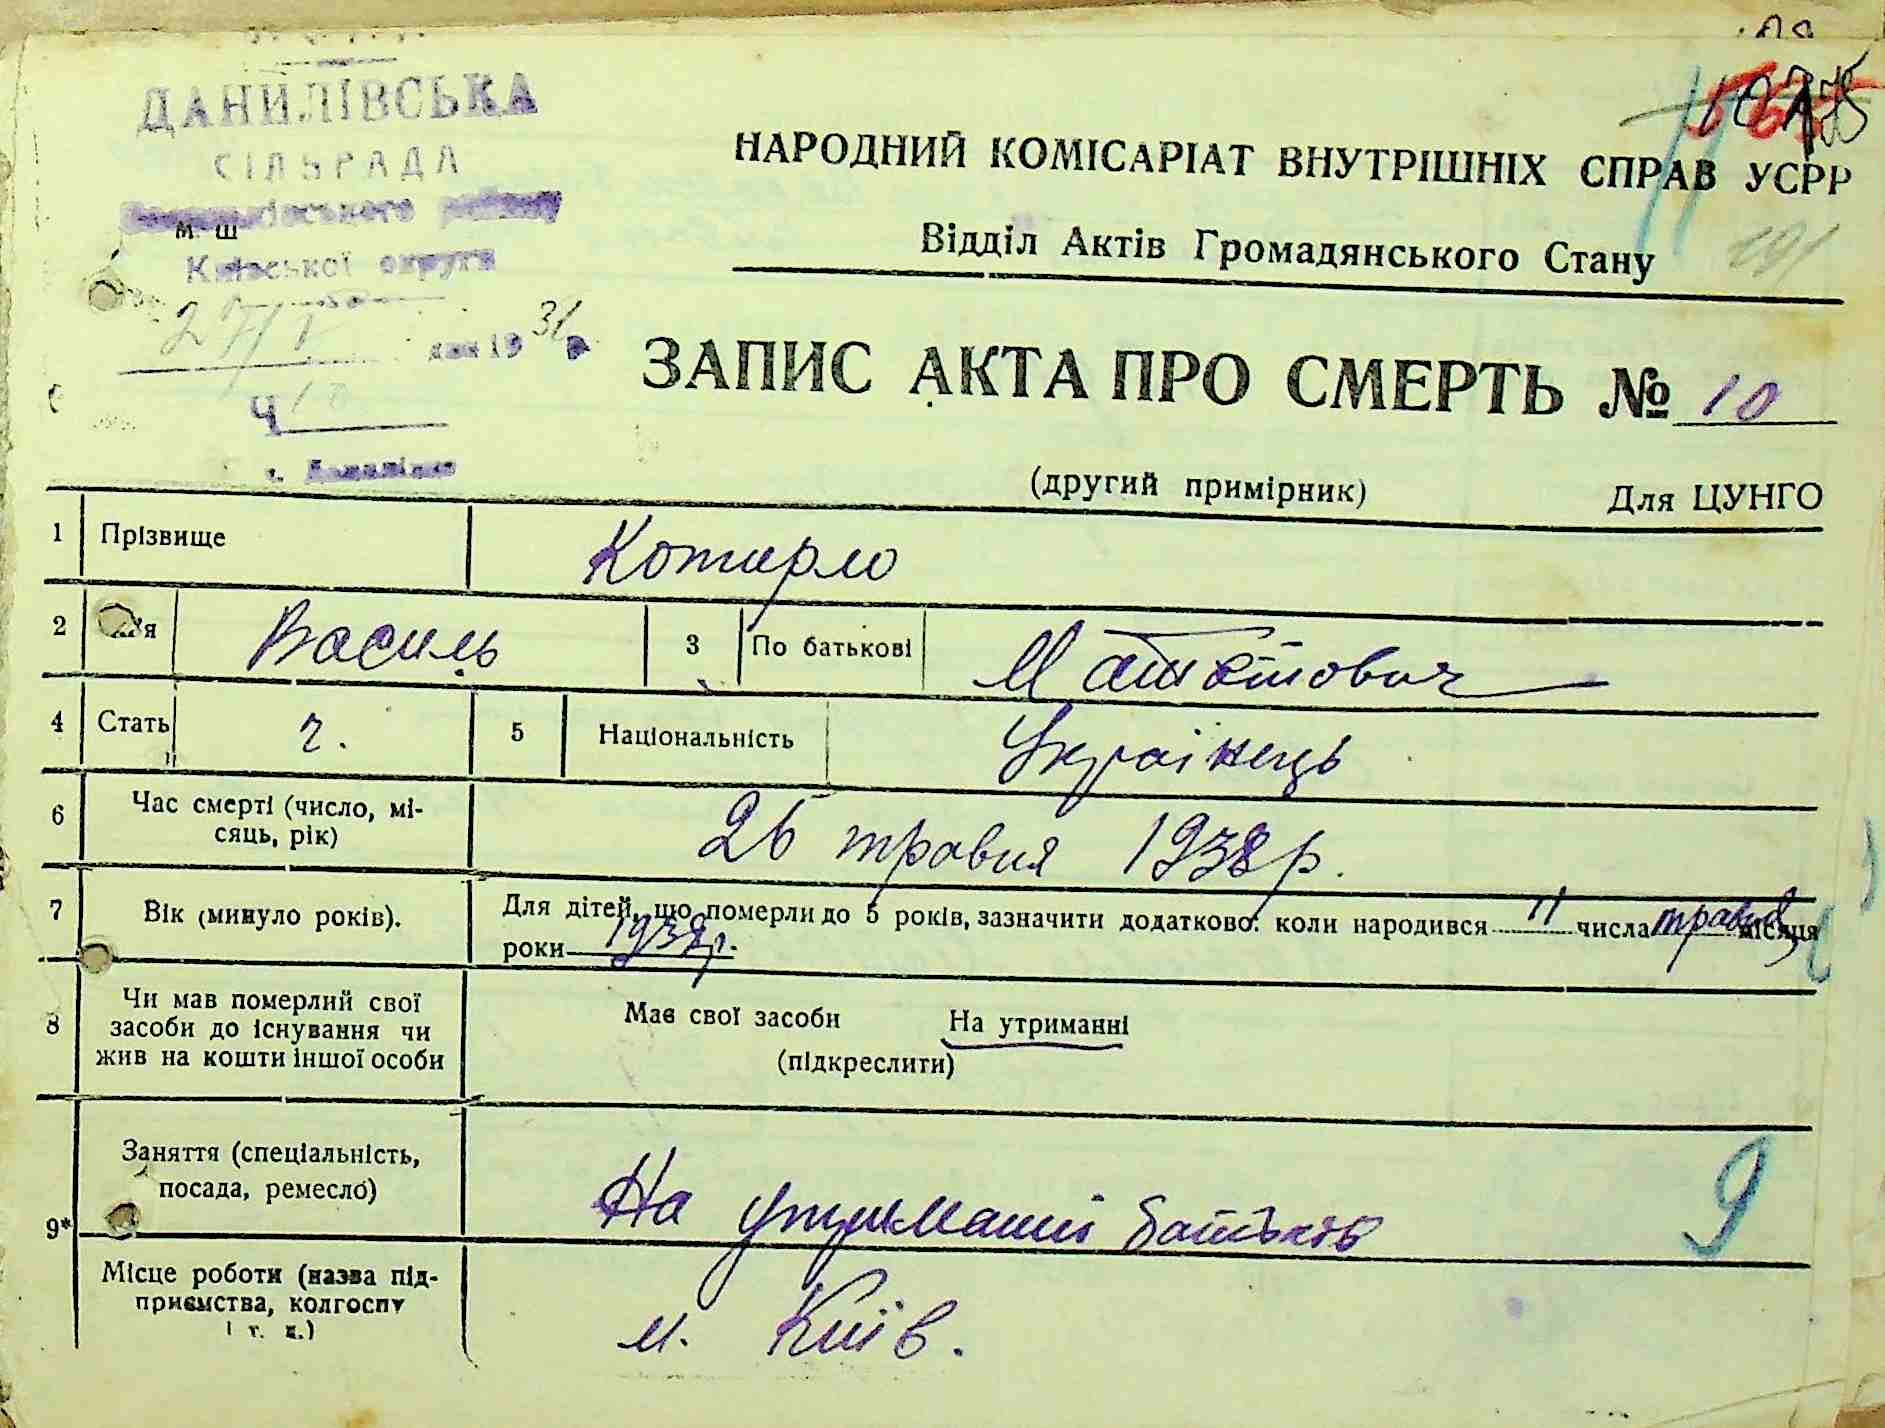 ДАНИЛІВСЬКА
СІЛЬРАДА
району
м. ш
Київської округи
27/V дня 1931 р.
Ч 10
с. Данилівка
1075
191
НАРОДНИЙ КОМІСАРІАТ ВНУТРІШНІХ СПРАВ УСРР
Відділ Актів Громадянського Стану
ЗАПИС АКТА ПРО СМЕРТЬ № 10
(другий примірник) Для ЦУНГО
1 Прізвище Котирло
2 Ім'я Василь 3 По батькові
4 Стать ч. 5 Національність Українець
6 Час смерті (число, мі-
сяць, рік) 26 травня 1938 р.
7 Вік (минуло років). Для дітей, що померли до 5 років, зазначити додатково: коли народився 11 числа травня місяця
роки 1938 р.
8 Чи мав померлий свої
засоби до існування чи
жив на кошти іншої особи
Має свої засоби На утриманні
(підкреслити)
9* Заняття (спеціальність,
посада, ремесло) На утриманні батьків 9
Місце роботи (назва під-
приємства, колгоспу
і т. д.) м. Київ.